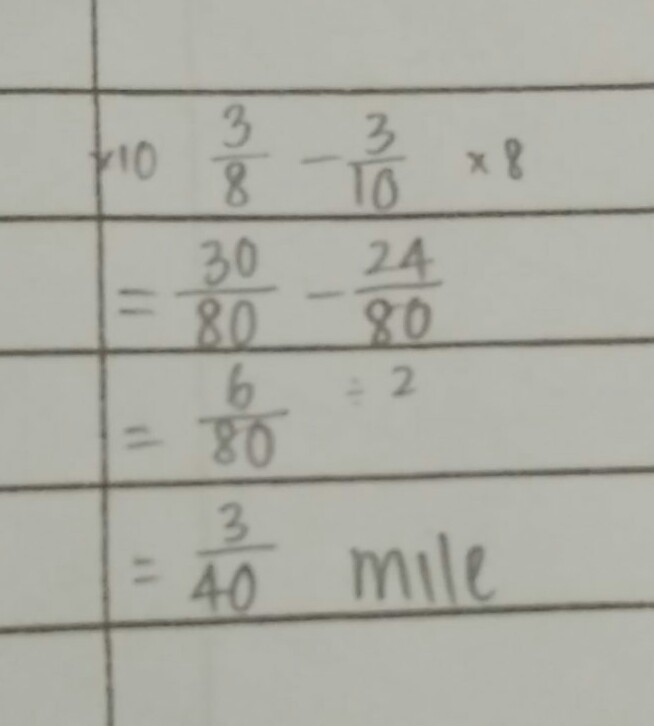 ×10 3/8 − 3/10 × 8
= 30/80 − 24/80
= 6/80 ÷ 2
= 3/40 mile